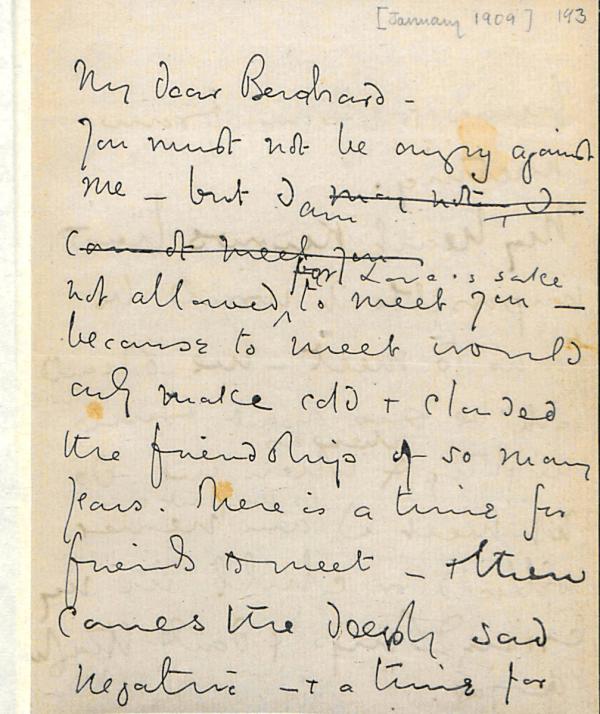 [January 1909] 193
My dear Bernhard -
You must not be angry against
me - but I am ~~may not I~~
~~cannot meet you~~
for Love's sake
not allowed ^ to meet you -
because to meet would
only make cold + clouded
the friendship of so many
years. There is a time for
friends to meet - + then
comes the deeply sad
negative - + a time for